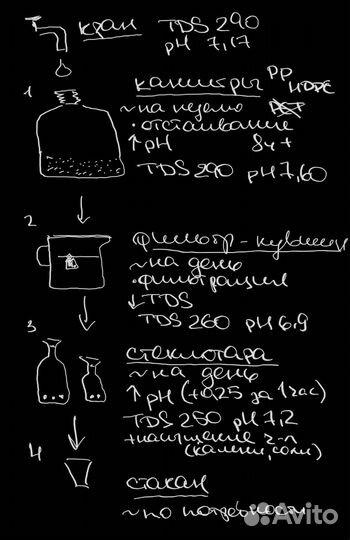 кран TDS 290
pH 7,17
1 канистры PP HDPE
~на неделю PET
• отстаивание
↑ pH 8ч+
TDS 290 pH 7,60
2 фильтр-кувшин
~на день
• фильтрация
↓ TDS
TDS 260 pH 6.9
3 стеклотара
~на день
↑ pH (+0.25 за 1 час)
TDS 250 pH 7,2
+ насыщение
(камни, соли)
4 стакан
~по потребности
Avito